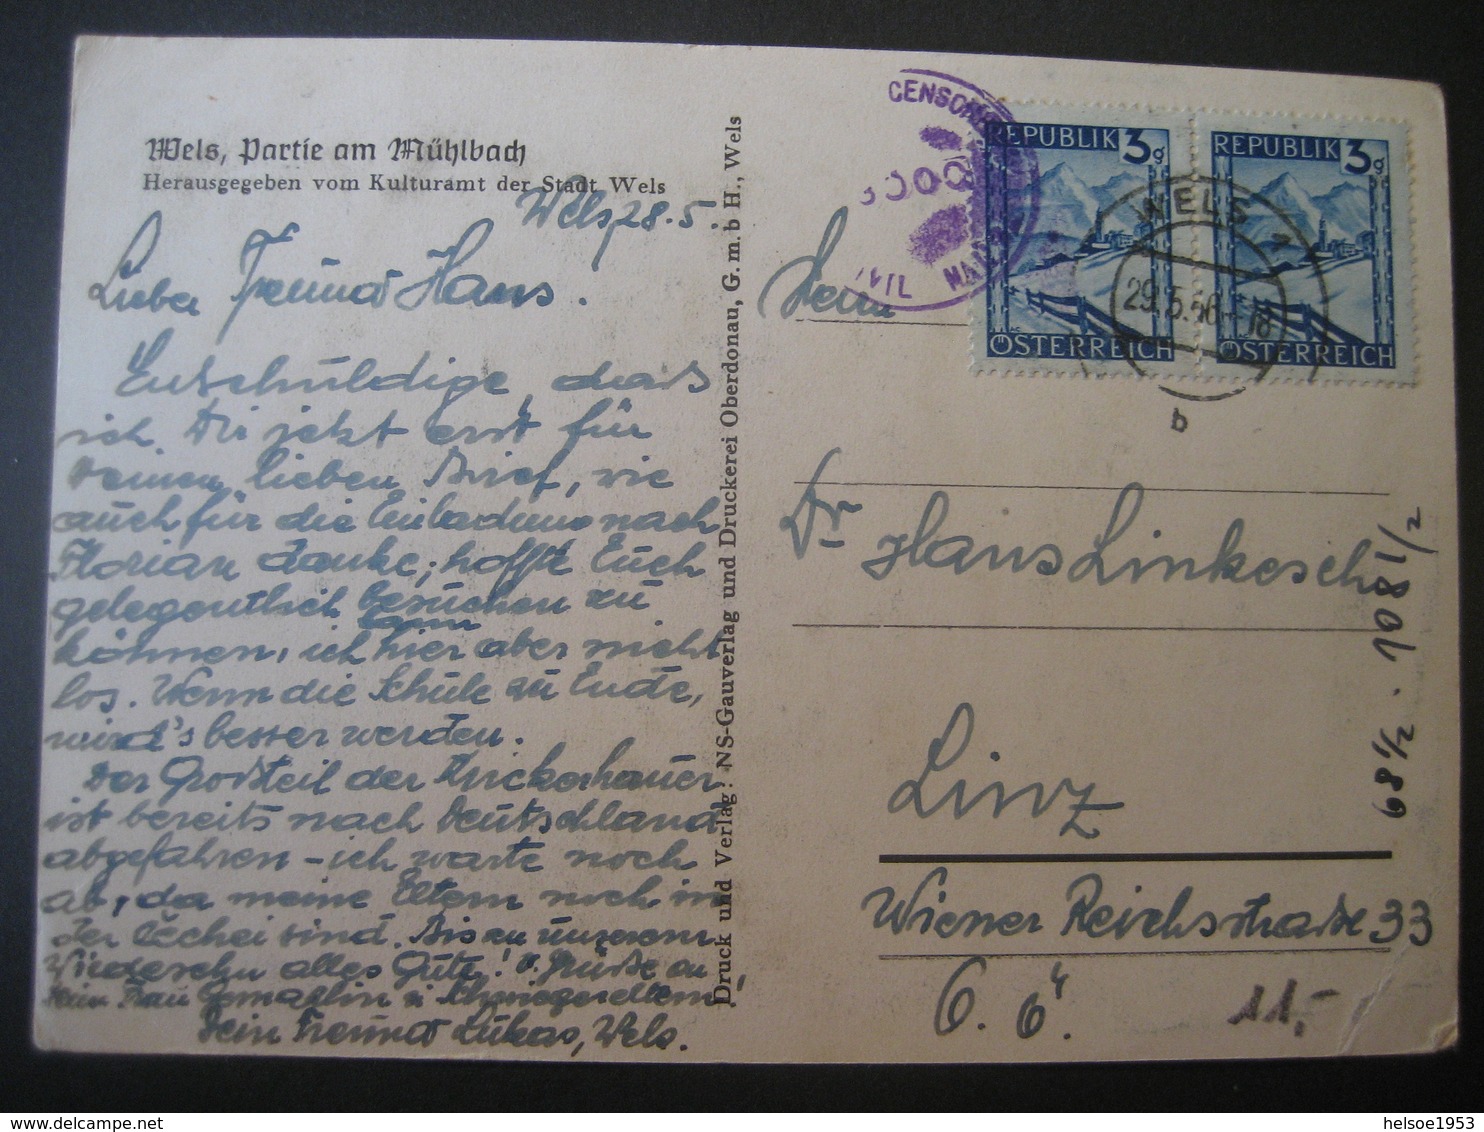 Wels, Partie am Mühlbach
Herausgegeben vom Kulturamt der Stadt Wels
Wels, 28.5.
Lieber Freund Hans.
Entschuldige, dass
ich Dir jetzt erst für
Deinen lieben Brief, wie
auch für die Einladung nach
Florian danke; hoffe Euch
gelegentlich besuchen zu
können, kann
ich hier aber nicht
los. Wenn die Schule zu Ende,
wird's besser werden.
Der Grossteil der
ist bereits nach Deutschland
abgefahren - ich warte noch
ab, da meine Eltern noch in
der Čechei sind. Bis zu unserem
Wiedersehn alles Gute! u. Grüsse an
Dein Frau Gemahlin u. Schwiegereltern!
Dein Freund Lukas, Wels.
Druck und Verlag: NS-Gauverlag und Druckerei Oberdonau, G.m.b H., Wels
CENSOR
CIVIL MAIL
REPUBLIK 3g
ÖSTERREICH
REPUBLIK 3g
ÖSTERREICH
WELS 1
29.5.46-18
b
Herrn
Dr Hans Linkesch
Linz
Wiener Reichsstraße 33
O. Ö.
68 1/2 . 108 1/2
11,-
helsoe1953